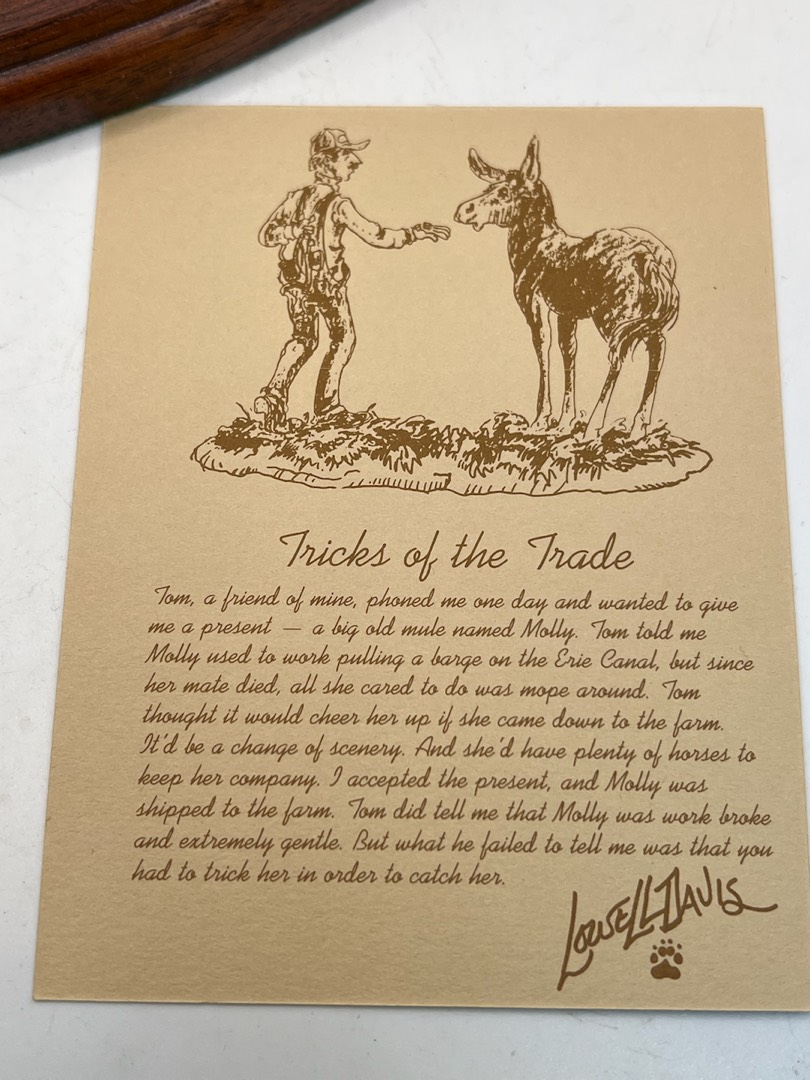 Tricks of the Trade
Tom, a friend of mine, phoned me one day and wanted to give
me a present — a big old mule named Molly. Tom told me
Molly used to work pulling a barge on the Erie Canal, but since
her mate died, all she cared to do was mope around. Tom
thought it would cheer her up if she came down to the farm.
It'd be a change of scenery. And she'd have plenty of horses to
keep her company. I accepted the present, and Molly was
shipped to the farm. Tom did tell me that Molly was work broke
and extremely gentle. But what he failed to tell me was that you
had to trick her in order to catch her.
Lowell Davis